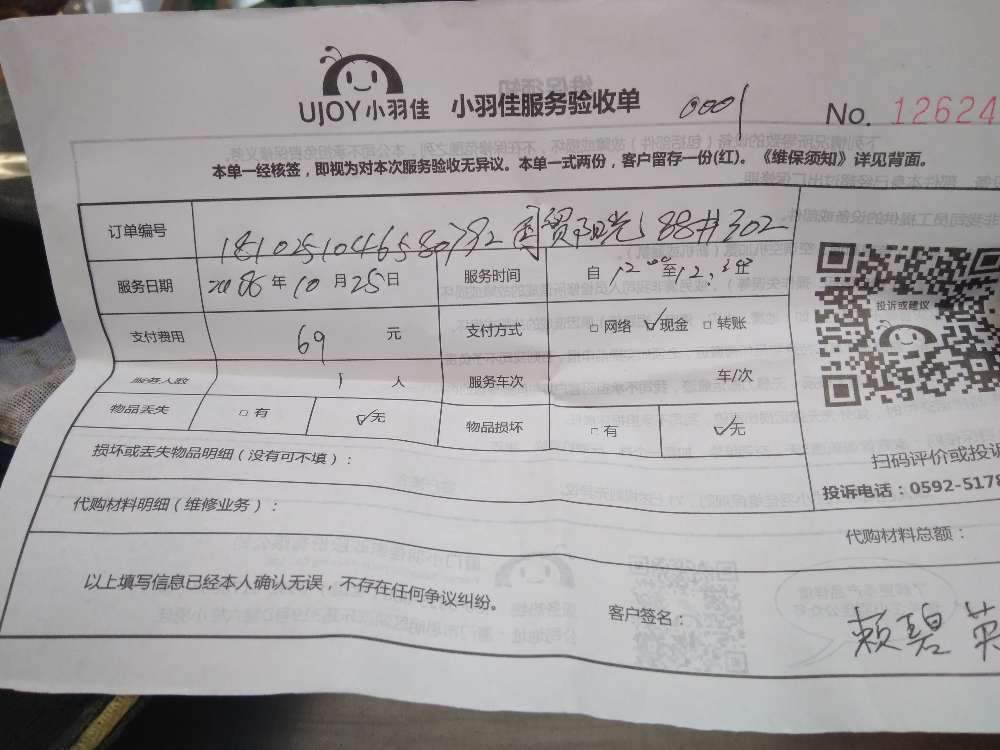 UJOY小羽佳 小羽佳服务验收单 0001 No. 12624
本单一经核签，即视为对本次服务验收无异议。本单一式两份，客户留存一份(红)。《维保须知》详见背面。
订单编号 国贸阳光 302
服务日期 年 10 月 25 日 服务时间 自 12 至 12
投诉或建议
支付费用 69 元 支付方式 □ 网络 ☑ 现金 □ 转账
服务人数 1 人 服务车次 车/次
物品丢失 □ 有 ☑ 无 物品损坏 □ 有 ☑ 无
损坏或丢失物品明细（没有可不填）：
扫码评价或投诉
投诉电话：0592-5178
代购材料明细（维修业务）：
代购材料总额：
以上填写信息已经本人确认无误，不存在任何争议纠纷。
客户签名： 赖碧英